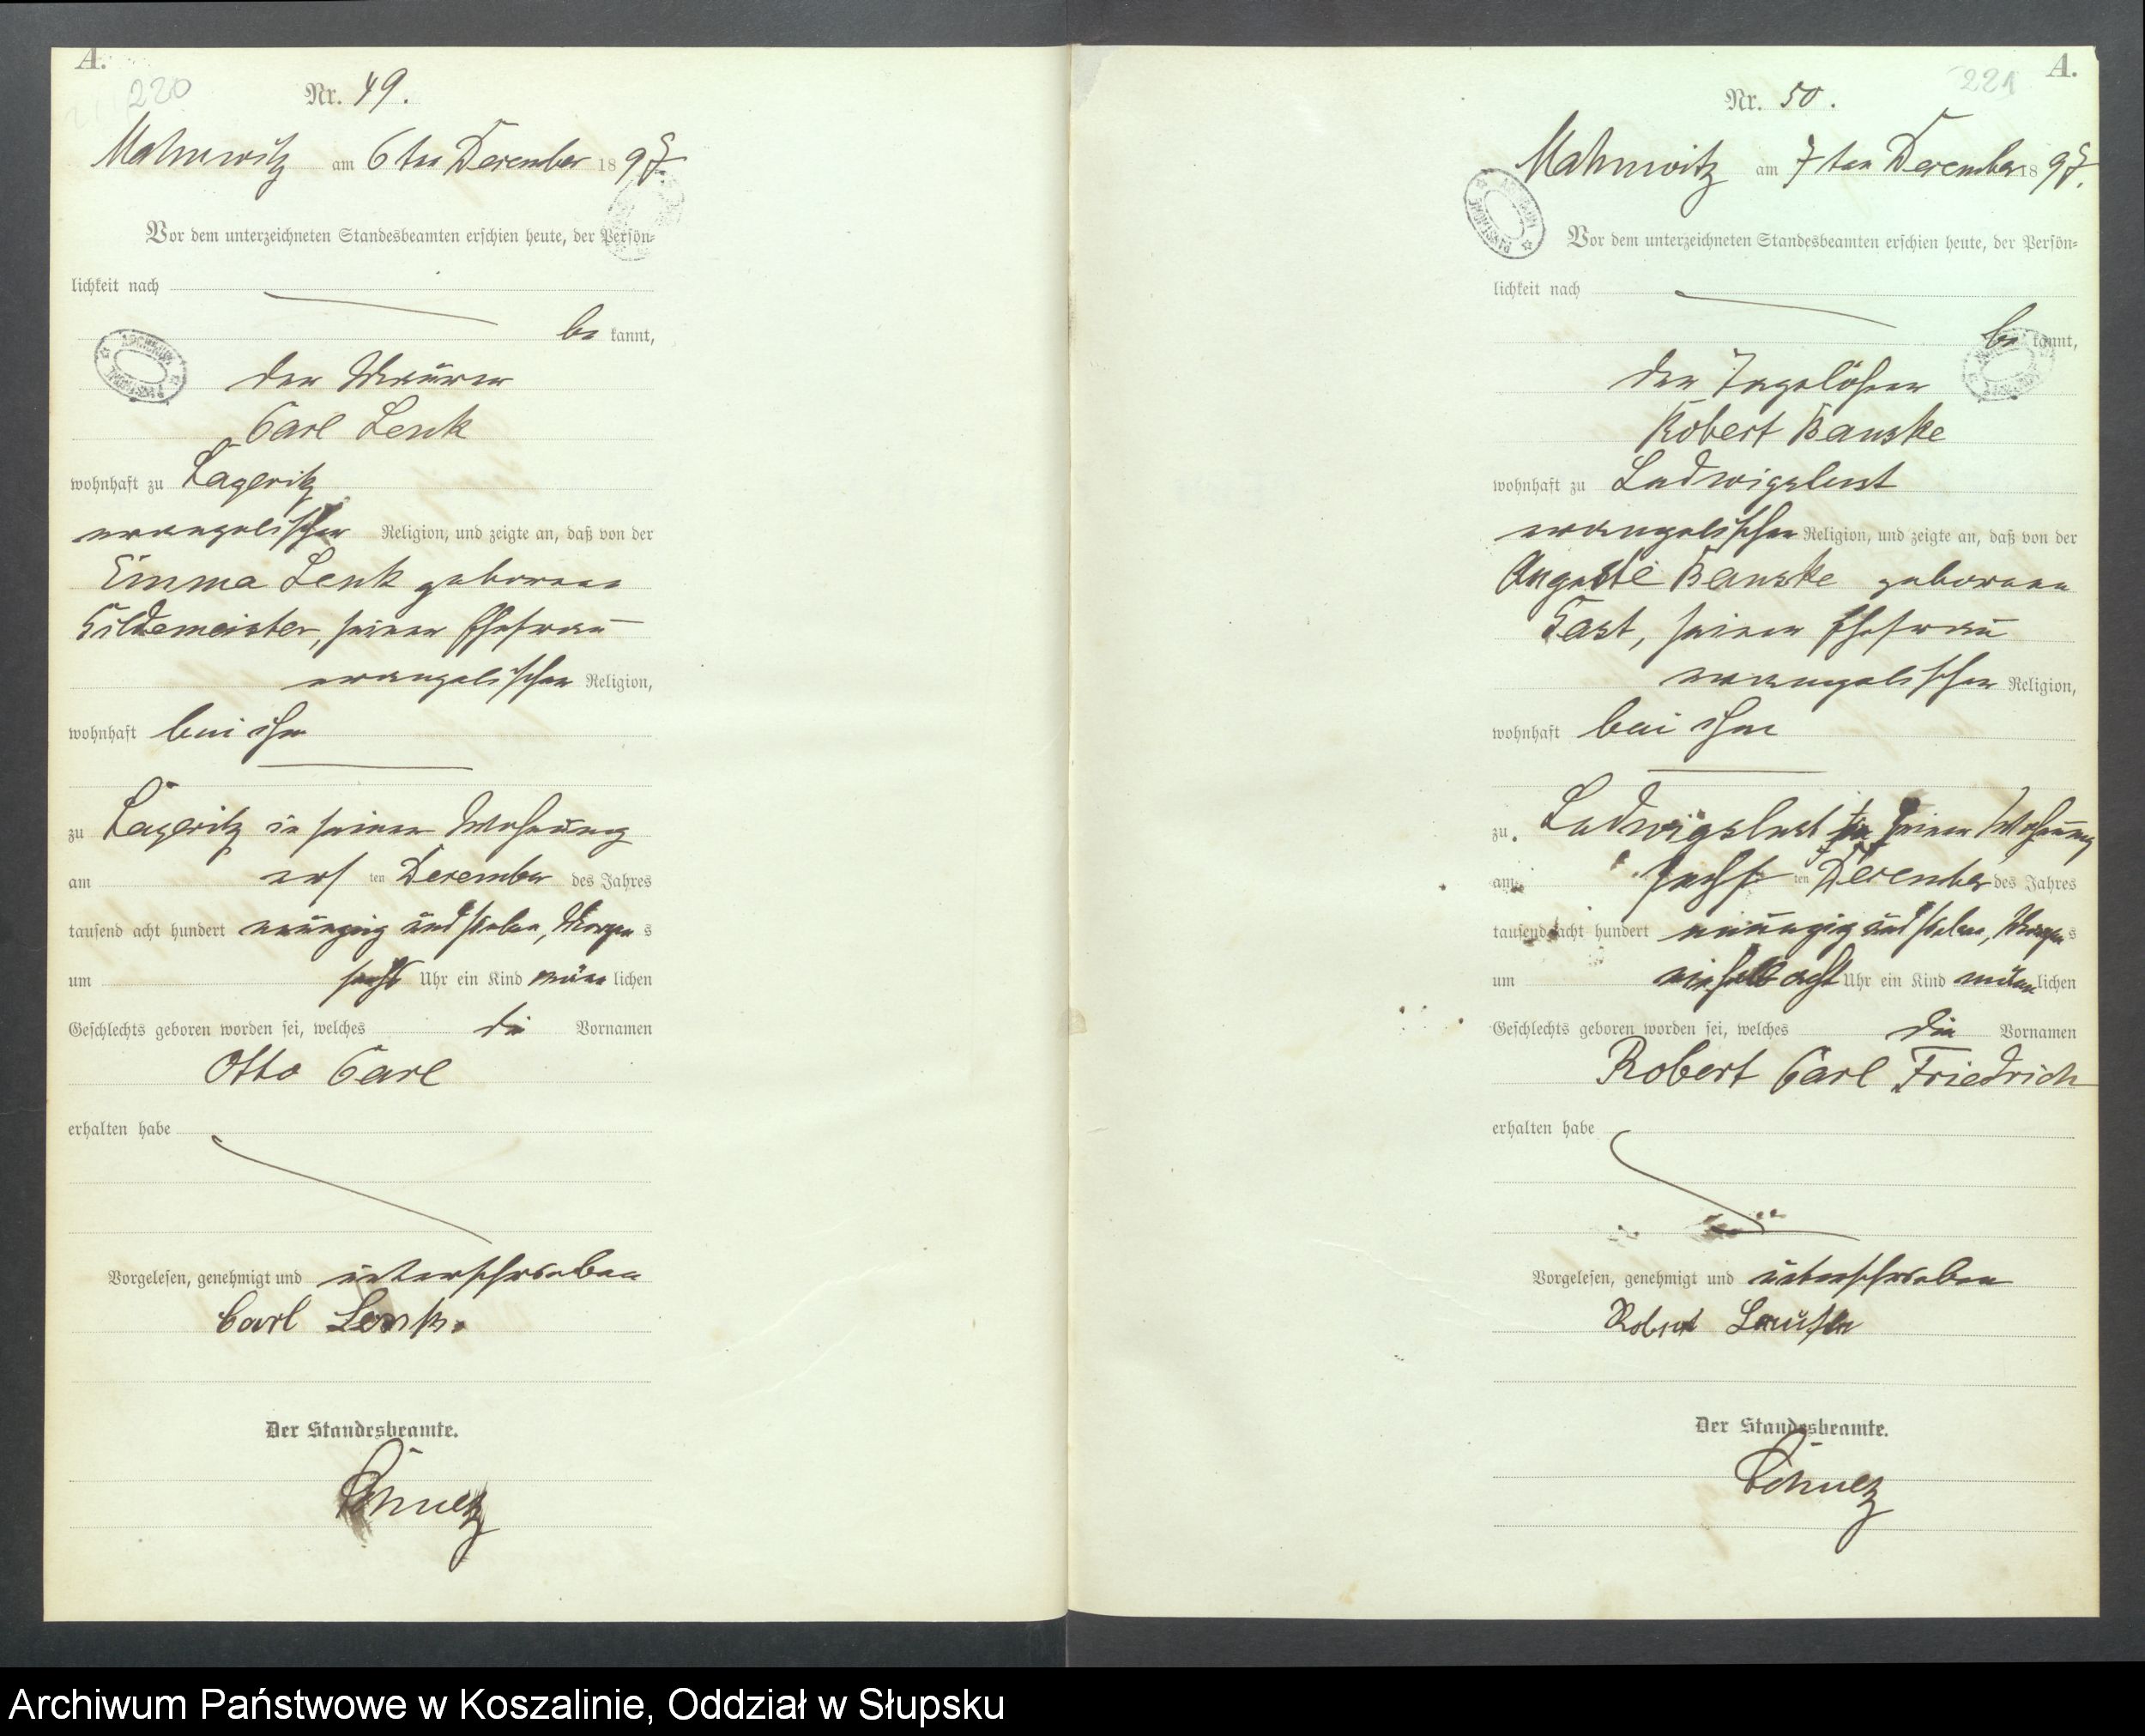 A.
220
Nr. 49.
Mahnwitz am 6ten December 1897.
Vor dem unterzeichneten Standesbeamten erschien heute, der Persön=
lichkeit nach
be kannt,
der Maurer
Carl Lenk
wohnhaft zu Lageritz
evangelischer Religion, und zeigte an, daß von der
Emma Lenk geborene
Gildemeister, seiner Ehefrau
evangelischer Religion,
wohnhaft bei ihm
zu Lageritz in seiner Wohnung
am ersten December des Jahres
tausend acht hundert neunzig und sieben, Morgens
um sechs Uhr ein Kind männlichen
Geschlechts geboren worden sei, welches die Vornamen
Otto Carl
erhalten habe
Vorgelesen, genehmigt und unterschrieben
Carl Lenk.
Der Standesbeamte.
Schultz
A.
221
Nr. 50.
Mahnwitz am 7ten December 1897.
Vor dem unterzeichneten Standesbeamten erschien heute, der Persön=
lichkeit nach
be kannt,
der Tagelöhner
Robert Banske
wohnhaft zu Ludwigslust
evangelischer Religion, und zeigte an, daß von der
Auguste Banske geborene
Gast, seiner Ehefrau
evangelischer Religion,
wohnhaft bei ihm
zu Ludwigslust in seiner Wohnung
am sechsten December des Jahres
tausend acht hundert neunzig und sieben, Morgens
um acht Uhr ein Kind männlichen
Geschlechts geboren worden sei, welches die Vornamen
Robert Carl Friedrich
erhalten habe
Vorgelesen, genehmigt und unterschrieben
Robert
Der Standesbeamte.
Schultz
Archiwum Państwowe w Koszalinie, Oddział w Słupsku